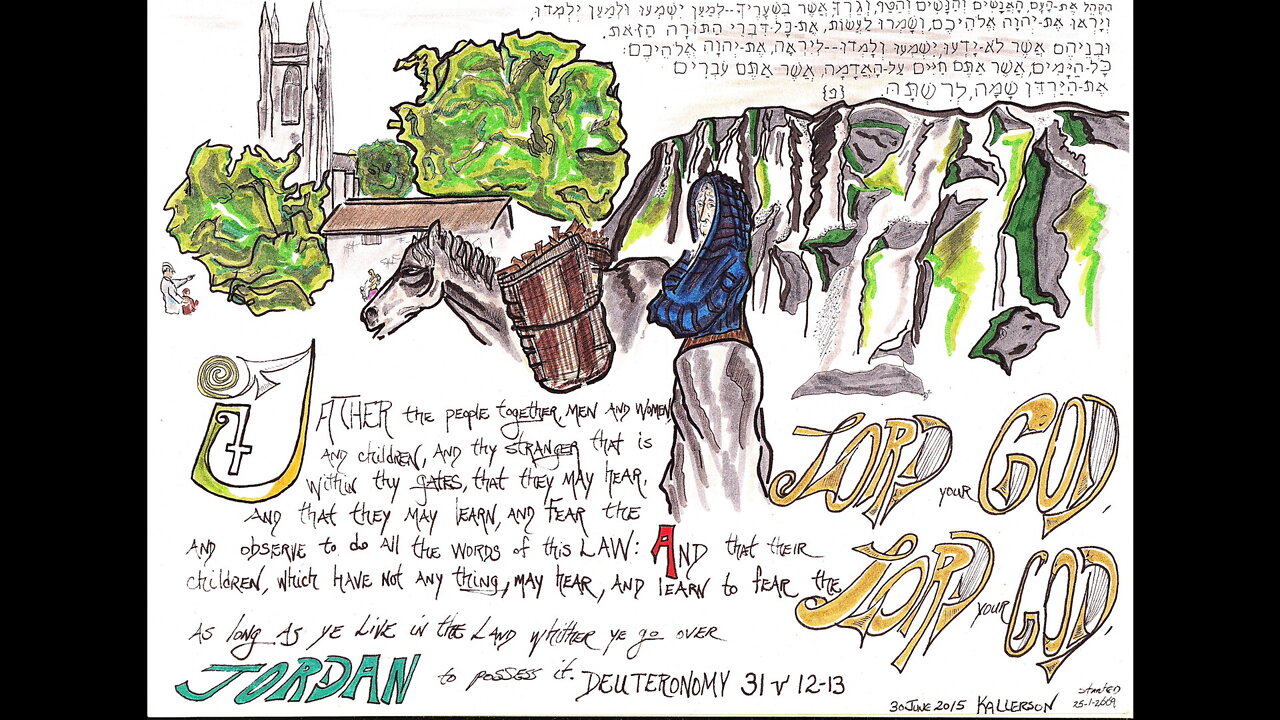 הַקְהֵל אֶת-הָעָם, הָאֲנָשִׁים וְהַנָּשִׁים וְהַטַּף, וְגֵרְךָ, אֲשֶׁר בִּשְׁעָרֶיךָ--לְמַעַן יִשְׁמְעוּ וּלְמַעַן יִלְמְדוּ,
וְיָרְאוּ אֶת-יְהוָה אֱלֹהֵיכֶם, וְשָׁמְרוּ לַעֲשׂוֹת, אֶת-כָּל-דִּבְרֵי הַתּוֹרָה הַזֹּאת.
וּבְנֵיהֶם אֲשֶׁר לֹא-יָדְעוּ יִשְׁמְעוּ וְלָמְדוּ--לְיִרְאָה, אֶת-יְהוָה אֱלֹהֵיכֶם:
כָּל-הַיָּמִים, אֲשֶׁר אַתֶּם חַיִּים עַל-הָאֲדָמָה, אֲשֶׁר אַתֶּם עֹבְרִים
אֶת-הַיַּרְדֵּן שָׁמָּה, לְרִשְׁתָּהּ. {פ}
GATHER the people together, MEN AND WOMEN,
AND children, AND thy STRANGER that is
within thy GATES, that they MAY HEAR,
AND that they MAY LEARN, AND FEAR the LORD your GOD,
AND OBSERVE to do All the WORDS of this LAW: AND that their
children, which HAVE NOT ANY thing, MAY HEAR, AND LEARN to FEAR the LORD your GOD,
AS long AS ye LIVE IN the LAND whither ye go OVER
JORDAN to POSSESS it. DEUTERONOMY 31 v 12-13
30 JUNE 2015 KALLERSON
started
25-1-2009